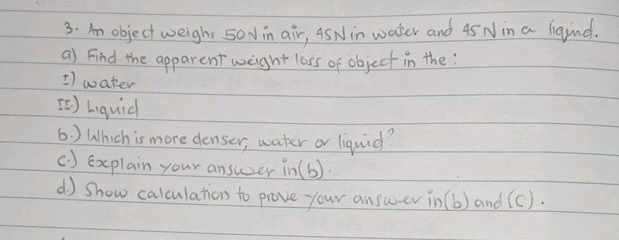 3. An object weighs 50N in air, 45N in water and 45N in a liqind.
a) Find the apparent weight loss of object in the :
I) water
II.) Liquid
b.) Which is more denser, water or liquid?
c.) Explain your answer in (b).
d.) Show calculation to prove your answer in (b) and (C).